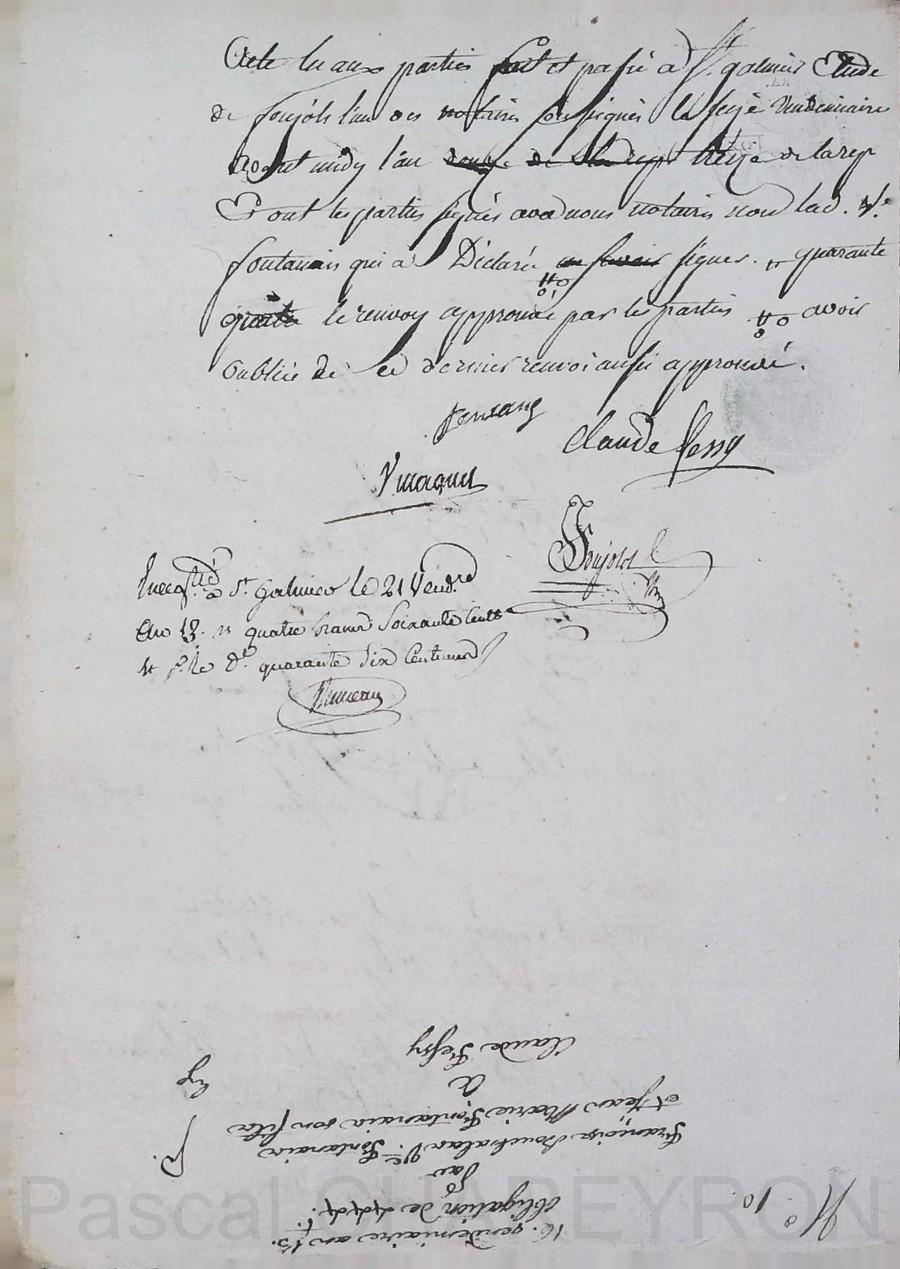 Acte lu aux parties fait et passé à St. galmier Etude
de foujols l'un des notaires soussignés le seize Vendemiaire
avant midy l'an douze de la rep treize de la rep
Et ont les parties signés avec nous notaires non lad. Ve
fontanais qui a Déclaré ne savoir signer. quarante
quatre le renvoy approuvé par les parties avoir
oublié de ce dernier renvoi aussi approuvé.
Claude fessy
Foujols
à St. Galmier le 21 Vend.re
An 13. quatre francs Soixante Cent
quarante Six Centimes
16. vendemiaire an 13.
obligation de 444 f.
par
Françoise Ve. Fontanais
et Jean Marie Fontanais son fils
A
Claude Fessy
No. 10.
Pascal CHAPEYRON